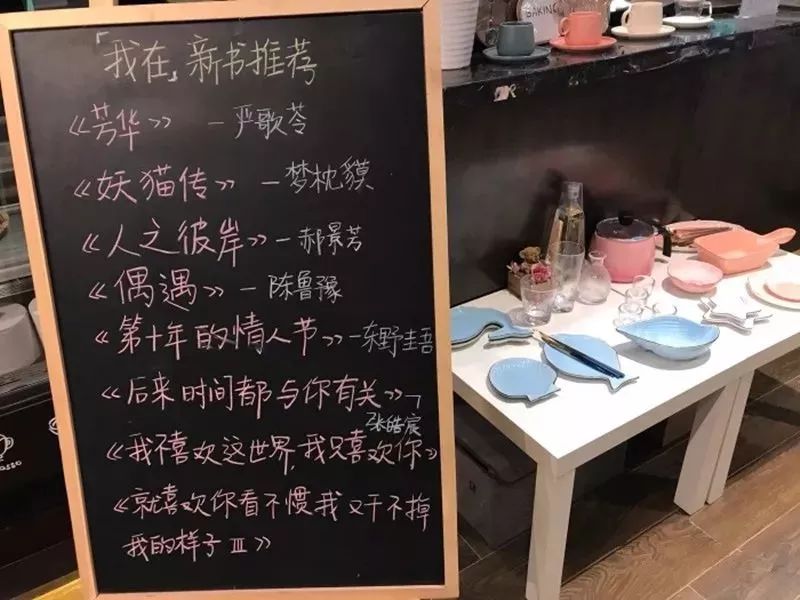 「我在」新书推荐
《芳华》 — 严歌苓
《妖猫传》 — 梦枕貘
《人之彼岸》 — 郝景芳
《偶遇》 — 陈鲁豫
《第十年的情人节》 — 东野圭吾
《后来时间都与你有关》 —
张皓宸
《我不喜欢这世界，我只喜欢你》
《就喜欢你看不惯我又干不掉
我的样子 III》
BAKING